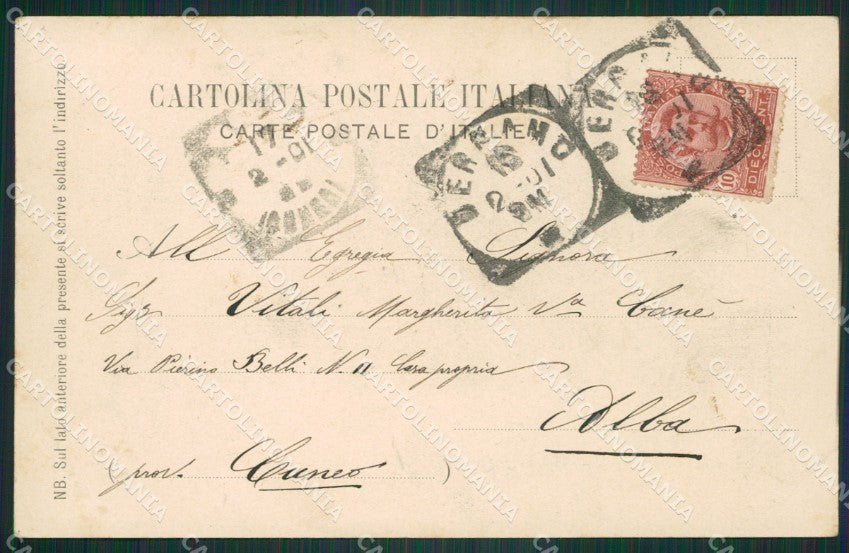 CARTOLINA POSTALE ITALIANA
CARTE POSTALE D'ITALIE
BERGAMO
16
2-01
BERGAMO
DIECI CENT.
10
17
2-01
(CUNEO)
All' Egregia Signora
Sig.ra Vitali Margherita Va Canè
Via Pierino Belli N. 11 Casa propria
Alba
(prov. Cuneo)
NB. Sul lato anteriore della presente si scrive soltanto l'indirizzo.
CARTOLINOMANIA